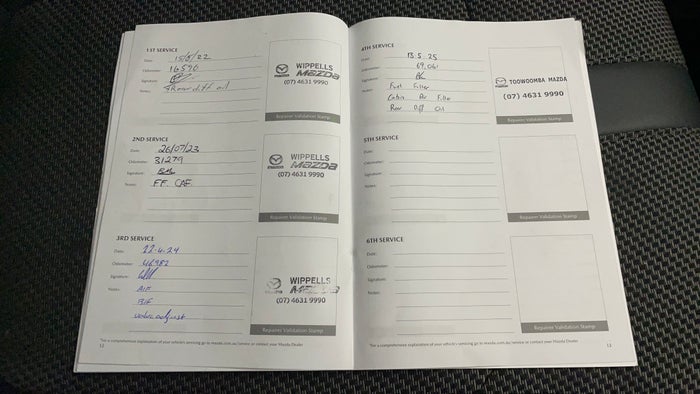 1ST SERVICE
Date: 15/8/22
Odometer: 16590
Signature:
Notes: Rear diff oil
WIPPELLS
mazda
(07) 4631 9990
Repairer Validation Stamp
2ND SERVICE
Date: 26/07/23
Odometer: 31279
Signature:
Notes: FF. CAF.
WIPPELLS
mazda
(07) 4631 9990
Repairer Validation Stamp
3RD SERVICE
Date: 22-4-24
Odometer: 46982
Signature:
Notes: AIF
BIF
valve adjust
WIPPELLS
mazda
(07) 4631 9990
Repairer Validation Stamp
*For a comprehensive explanation of your vehicle's servicing go to mazda.com.au/service or contact your Mazda Dealer
12
4TH SERVICE
Date: 13.5.25
Odometer: 69,061
Signature:
Notes: Fuel Filter
Cabin Air Filter
Rear Diff Oil
TOOWOOMBA MAZDA
(07) 4631 9990
Repairer Validation Stamp
5TH SERVICE
Date:
Odometer:
Signature:
Notes:
Repairer Validation Stamp
6TH SERVICE
Date:
Odometer:
Signature:
Notes:
Repairer Validation Stamp
*For a comprehensive explanation of your vehicle's servicing go to mazda.com.au/service or contact your Mazda Dealer
13